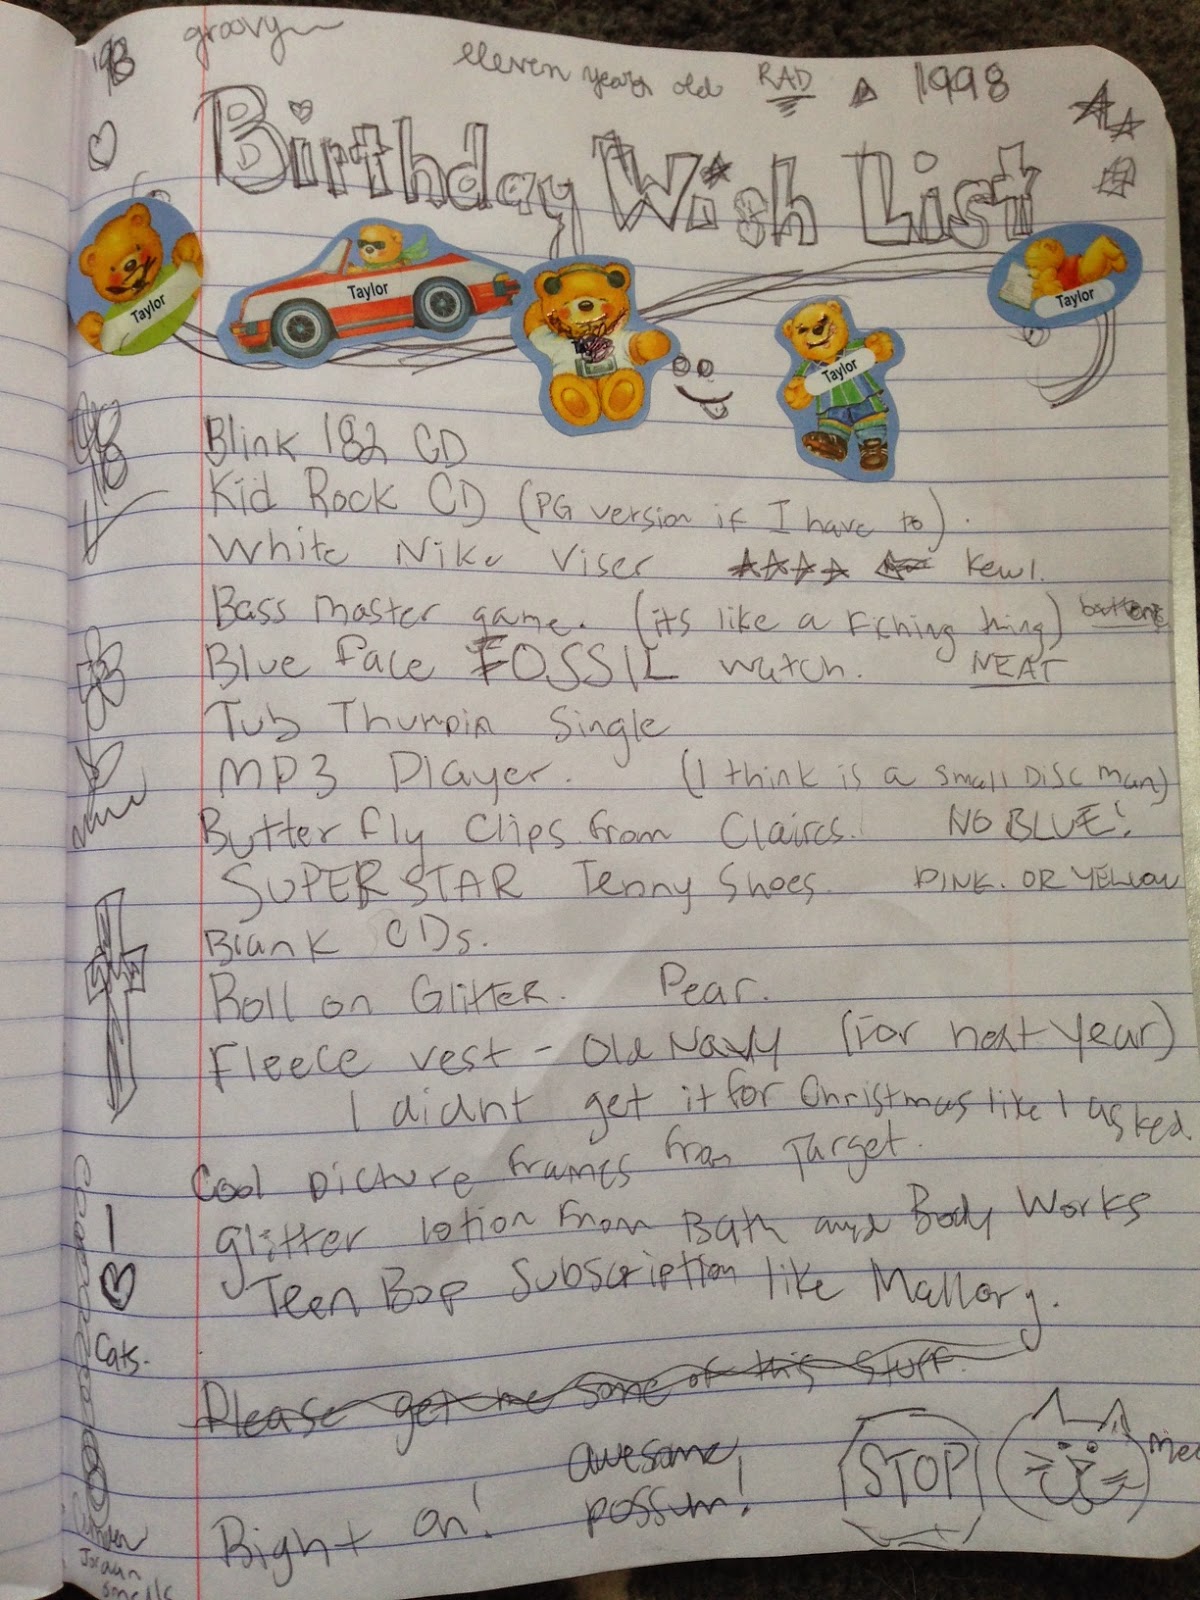 '98 groovy
eleven years old RAD 1998
Birthday Wish List
Taylor
Taylor
Taylor
Taylor
Blink 182 CD
Kid Rock CD (PG version if I have to).
White Nike Viser Kewl.
Bass master game. (its like a Fiching thing)
Blue face FOSSIL watch. NEAT
Tub Thumpin Single
MP3 Player. (I think is a small Disc man)
Butterfly Clips from Claires. NO BLUE!
SUPERSTAR Tenny Shoes. PINK. OR YELLOW
Blank CDs.
Roll on Glitter. Pear.
Fleece vest - Old Navy (For next year)
I didnt get it for Christmas like I asked.
Cool picture frames from Target.
glitter lotion from Bath and Body Works
Teen Bop Subscription like Mallory.
I
♡
Cats.
Please get me some of this stuff.
Right on! awesome possum! STOP
smells